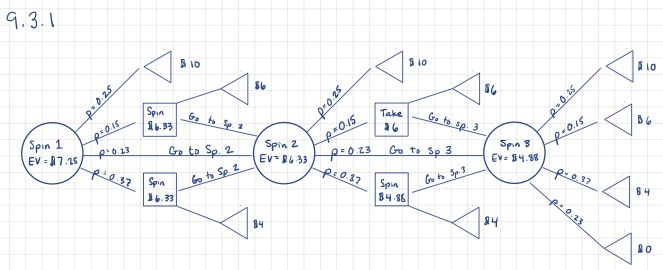 9.3.1
Spin 1
EV = $7.25
p=0.25
$10
p=0.15
Spin
$6.33
$6
Go to Sp. 2
p=0.23
Go to Sp. 2
p=0.37
Spin
$6.33
Go to Sp. 2
$4
Spin 2
EV = $6.33
p=0.25
$10
p=0.15
Take
$6
$6
Go to Sp. 3
p=0.23
Go to Sp 3
p=0.37
Spin
$4.88
Go to Sp.3
$4
Spin 3
EV= $4.88
p=0.25
$10
p=0.15
$6
p=0.37
$4
p=0.23
$0